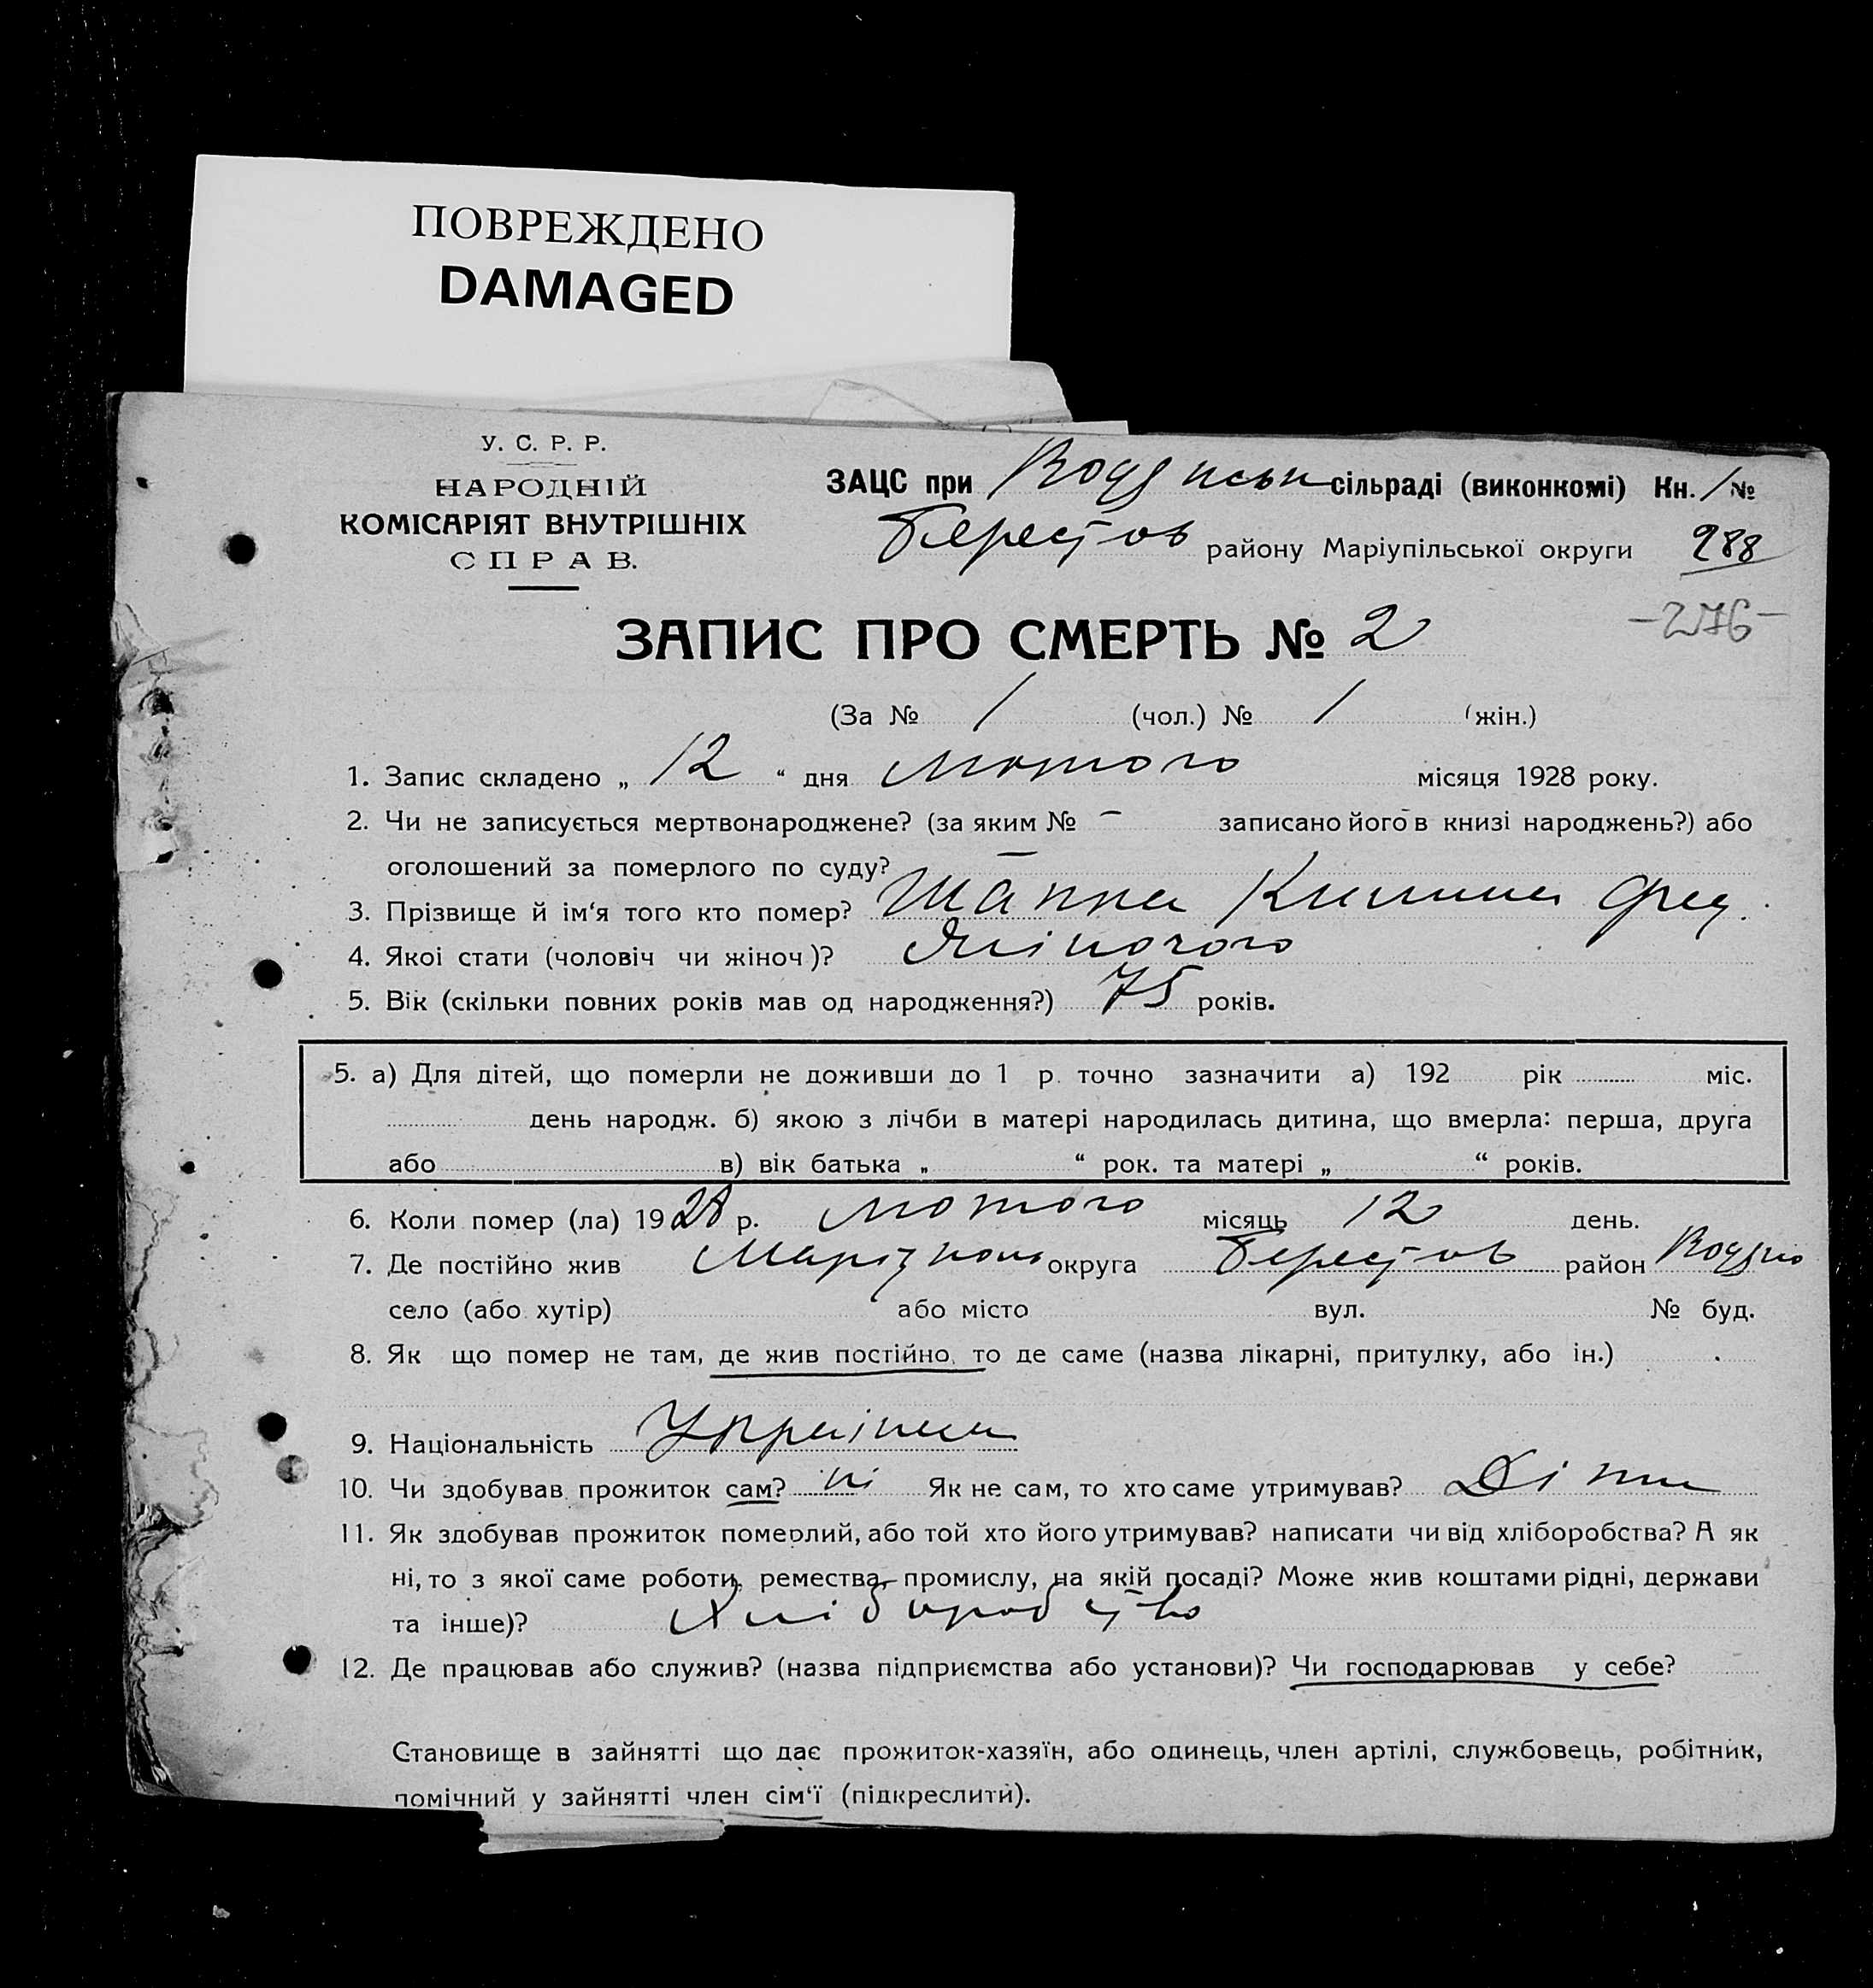 ПОВРЕЖДЕНО
DAMAGED
У. С. Р. Р.
НАРОДНІЙ
КОМІСАРІЯТ ВНУТРІШНІХ
СПРАВ.
ЗАЦС при сільраді (виконкомі) Кн. 1 №
Берестов району Маріупільської округи 288
-276-
ЗАПИС ПРО СМЕРТЬ № 2
(За № 1 (чол.) № 1 (жін.)
1. Запис складено „ 12 “ дня лютого місяця 1928 року.
2. Чи не записується мертвонароджене? (за яким № – записано його в книзі народжень?) або
оголошений за померлого по суду? –
3. Прізвище й ім‘я того кто помер? Фед.
4. Якоі стати (чоловіч чи жіноч)? Жіночого
5. Вік (скільки повних років мав од народження?) 75 років.
5. а) Для дітей, що померли не доживши до 1 р. точно зазначити а) 192 рік міс.
день народж. б) якою з лічби в матері народилась дитина, що вмерла: перша, друга
або в) вік батька „ “ рок. та матері „ “ років.
6. Коли помер (ла) 1928 р. лютого місяць 12 день.
7. Де постійно жив Маріупол округа Берестов район
село (або хутір) або місто вул. № буд.
8. Як що помер не там, де жив постійно, то де саме (назва лікарні, притулку, або ін.)
9. Національність Україн
10. Чи здобував прожиток сам? ні Як не сам, то хто саме утримував? Діти
11. Як здобував прожиток померлий, або той хто його утримував? написати чи від хліборобства? А як
ні, то з якої саме роботи, ремества, промислу, на якій посаді? Може жив коштами рідні, держави
та інше)? Хліборобство
12. Де працював або служив? (назва підприємства або установи)? Чи господарював у себе?
Становище в зайнятті що дає прожиток-хазяїн, або одинець, член артілі, службовець, робітник,
помічний у зайнятті член сім‘ї (підкреслити).